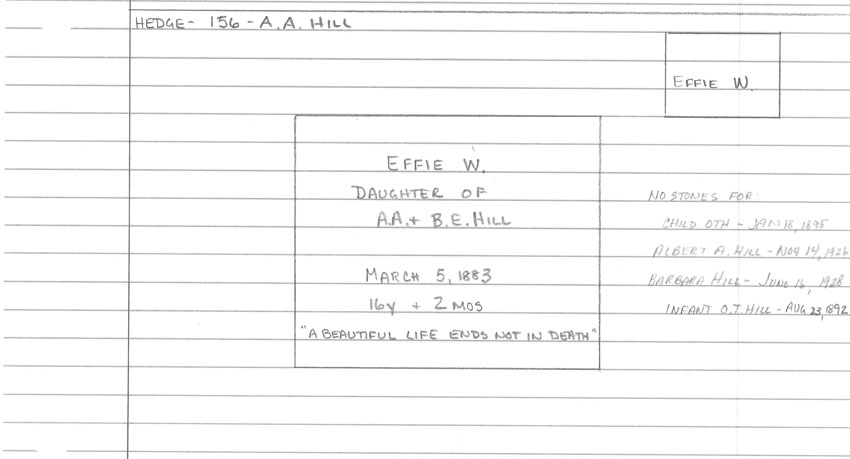 HEDGE - 156 - A.A. HILL
EFFIE W.
EFFIE W.
DAUGHTER OF
A.A. + B.E. HILL
MARCH 5, 1883
16Y + 2 MOS
"A BEAUTIFUL LIFE ENDS NOT IN DEATH"
NO STONES FOR:
CHILD OTH - JAN 18, 1895
ALBERT A. HILL - NOV 14, 1926
BARBARA HILL - JUNE 16, 1928
INFANT O.T. HILL - AUG 23, 1892